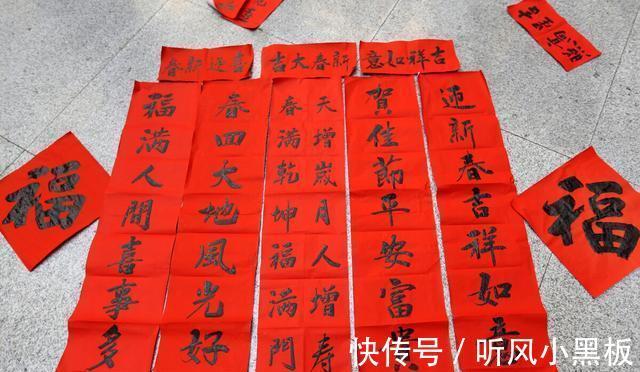 吉祥如意
新春大吉
喜迎新春
迎新春吉祥如意
賀佳節平安富貴
天增歲月人增寿
春滿乾坤福滿門
春回大地風光好
福滿人間喜事多
福
福
快传号 / 听风小黑板